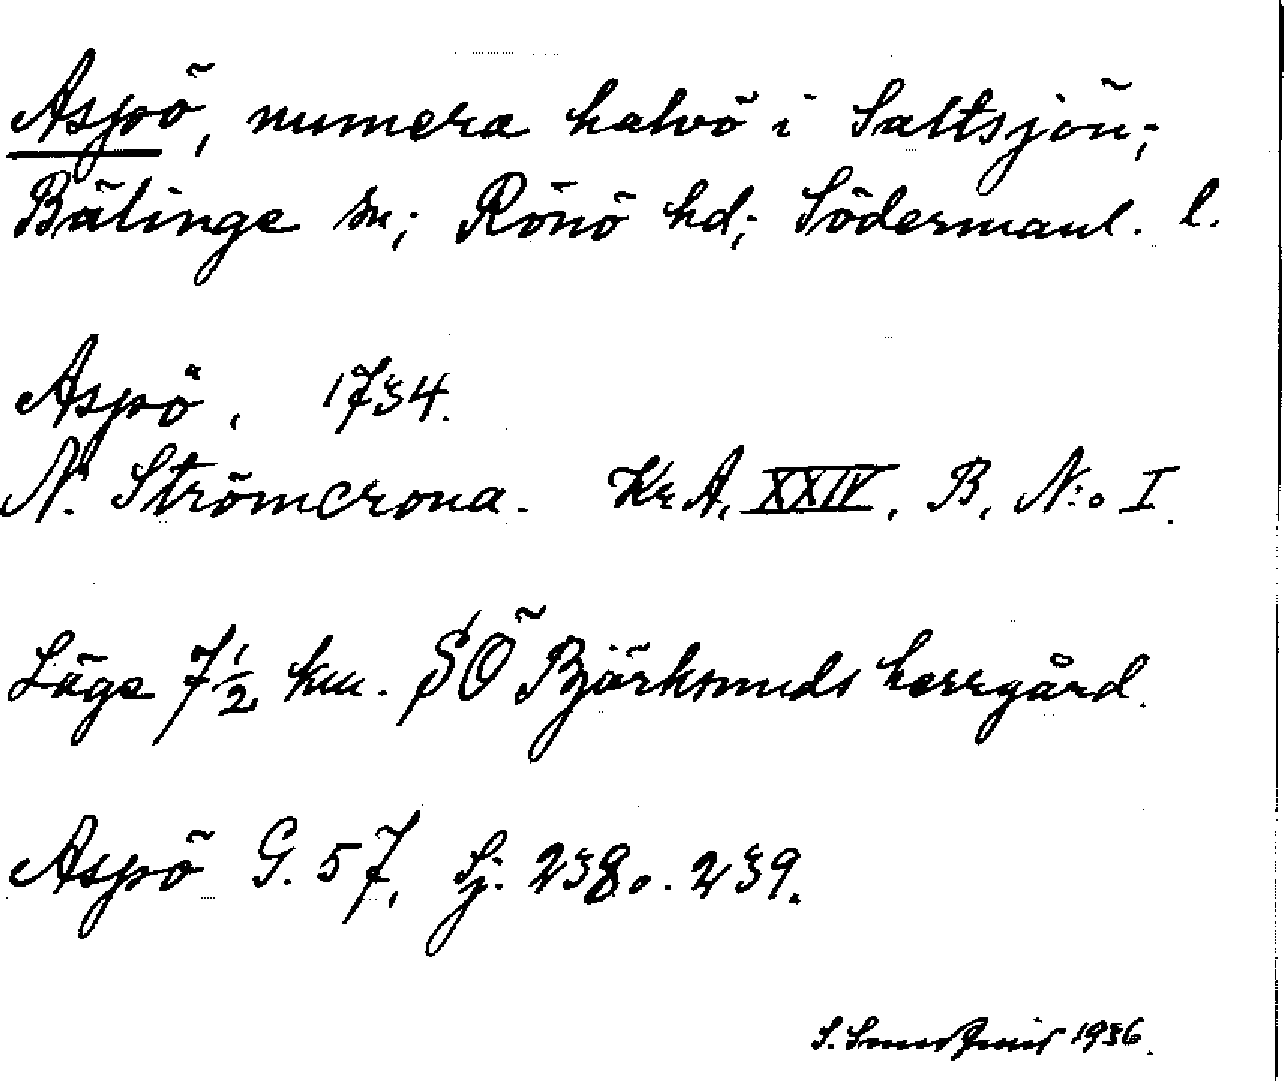 Aspö, numera halvö i Saltsjön;
Bälinge sn; Rönö hd; Södermanl. l.
Aspö, 1734.
N. Strömcrona. Kr.A. XXIV, B, N:o I.
Läge 7 1/2 km. SÖ Björksunds herrgård.
Aspö G. 57, Sj. 238 o. 239.
S. 1936.